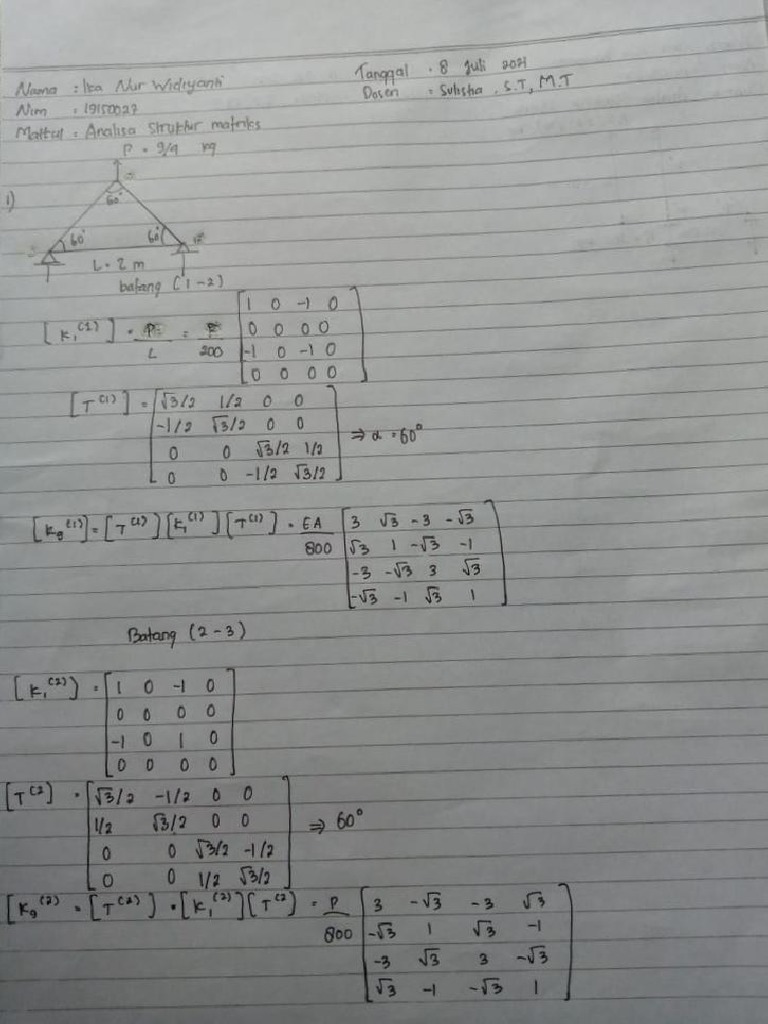 Nama : Ika Nur Widiyanti
Nim : 19150027
Matkul : Analisa Struktur matriks
Tanggal : 8 Juli 2021
Dosen : Sulisha, S.T, M.T
P = kg
1)
60°
60° 60°
L = 2 m
batang (1-2)
[K₁⁽¹⁾] = / L = / 200 [1 0 -1 0
0 0 0 0
-1 0 -1 0
0 0 0 0]
[T⁽¹⁾] = [√3/2 1/2 0 0
-1/2 √3/2 0 0
0 0 √3/2 1/2
0 0 -1/2 √3/2] ⇒ α = 60°
[Kg⁽¹⁾] = [T⁽¹⁾] [K₁⁽¹⁾] [T⁽¹⁾] = EA / 800 [3 √3 -3 -√3
√3 1 -√3 -1
-3 -√3 3 √3
-√3 -1 √3 1]
Batang (2-3)
[K₁⁽²⁾] = [1 0 -1 0
0 0 0 0
-1 0 1 0
0 0 0 0]
[T⁽²⁾ = [√3/2 -1/2 0 0
1/2 √3/2 0 0
0 0 √3/2 -1/2
0 0 1/2 √3/2] ⇒ 60°
[Kg⁽²⁾ = [T⁽²⁾] • [K₁⁽²⁾] [T⁽²⁾] = P / 800 [3 -√3 -3 √3
-√3 1 √3 -1
-3 √3 3 -√3
√3 -1 -√3 1]